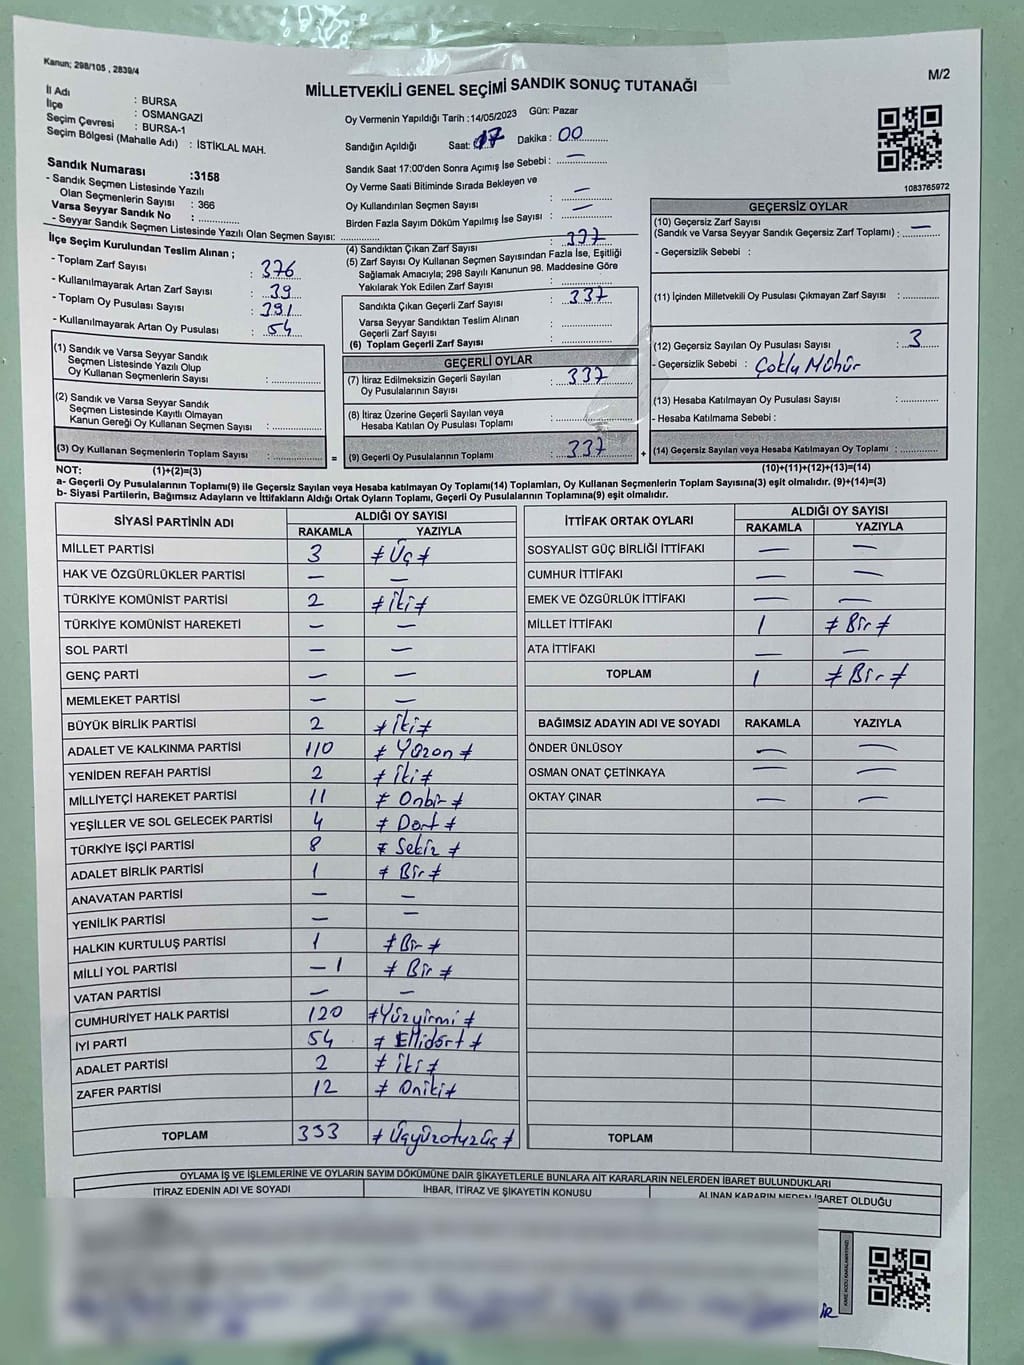 Kanun; 298/105 , 2839/4
MİLLETVEKİLİ GENEL SEÇİMİ SANDIK SONUÇ TUTANAĞI
M/2
İl Adı : BURSA
İlçe : OSMANGAZİ
Seçim Çevresi : BURSA-1
Seçim Bölgesi (Mahalle Adı) : İSTİKLAL MAH.
Sandık Numarası :3158
- Sandık Seçmen Listesinde Yazılı
Olan Seçmenlerin Sayısı : 366
Varsa Seyyar Sandık No :
- Seyyar Sandık Seçmen Listesinde Yazılı Olan Seçmen Sayısı:
Oy Vermenin Yapıldığı Tarih :14/05/2023 Gün: Pazar
Sandığın Açıldığı Saat: 17 Dakika : 00
Sandık Saat 17:00'den Sonra Açımış İse Sebebi : —
Oy Verme Saati Bitiminde Sırada Bekleyen ve
Oy Kullandırılan Seçmen Sayısı : —
Birden Fazla Sayım Döküm Yapılmış İse Sayısı : —
1083765972
İlçe Seçim Kurulundan Teslim Alınan ;
- Toplam Zarf Sayısı : 376
- Kullanılmayarak Artan Zarf Sayısı : 39
- Toplam Oy Pusulası Sayısı : 391
- Kullanılmayarak Artan Oy Pusulası : 54
(1) Sandık ve Varsa Seyyar Sandık
Seçmen Listesinde Yazılı Olup
Oy Kullanan Seçmenlerin Sayısı :
(2) Sandık ve Varsa Seyyar Sandık
Seçmen Listesinde Kayıtlı Olmayan
Kanun Gereği Oy Kullanan Seçmen Sayısı :
(3) Oy Kullanan Seçmenlerin Toplam Sayısı :
(4) Sandıktan Çıkan Zarf Sayısı : 337
(5) Zarf Sayısı Oy Kullanan Seçmen Sayısından Fazla İse, Eşitliği
Sağlamak Amacıyla; 298 Sayılı Kanunun 98. Maddesine Göre
Yakılarak Yok Edilen Zarf Sayısı :
Sandıkta Çıkan Geçerli Zarf Sayısı : 337
Varsa Seyyar Sandıktan Teslim Alınan
Geçerli Zarf Sayısı :
(6) Toplam Geçerli Zarf Sayısı :
GEÇERLİ OYLAR
(7) İtiraz Edilmeksizin Geçerli Sayılan
Oy Pusulalarının Sayısı : 337
(8) İtiraz Üzerine Geçerli Sayılan veya
Hesaba Katılan Oy Pusulası Toplamı :
= (9) Geçerli Oy Pusulalarının Toplamı : 337 +
GEÇERSİZ OYLAR
(10) Geçersiz Zarf Sayısı
(Sandık ve Varsa Seyyar Sandık Geçersiz Zarf Toplamı) : —
- Geçersizlik Sebebi :
(11) İçinden Milletvekili Oy Pusulası Çıkmayan Zarf Sayısı :
(12) Geçersiz Sayılan Oy Pusulası Sayısı : 3
- Geçersizlik Sebebi : Çoklu Mühür
(13) Hesaba Katılmayan Oy Pusulası Sayısı :
- Hesaba Katılmama Sebebi :
(14) Geçersiz Sayılan veya Hesaba Katılmayan Oy Toplamı :
NOT: (1)+(2)=(3) (10)+(11)+(12)+(13)=(14)
a- Geçerli Oy Pusulalarının Toplamı(9) ile Geçersiz Sayılan veya Hesaba katılmayan Oy Toplamı(14) Toplamları, Oy Kullanan Seçmenlerin Toplam Sayısına(3) eşit olmalıdır. (9)+(14)=(3)
b- Siyasi Partilerin, Bağımsız Adayların ve İttifakların Aldığı Ortak Oyların Toplamı, Geçerli Oy Pusulalarının Toplamına(9) eşit olmalıdır.
SİYASİ PARTİNİN ADI ALDIĞI OY SAYISI
RAKAMLA YAZIYLA
MİLLET PARTİSİ 3 ≠ Üç ≠
HAK VE ÖZGÜRLÜKLER PARTİSİ — —
TÜRKİYE KOMÜNİST PARTİSİ 2 ≠ İki ≠
TÜRKİYE KOMÜNİST HAREKETİ — —
SOL PARTİ — —
GENÇ PARTİ — —
MEMLEKET PARTİSİ — —
BÜYÜK BİRLİK PARTİSİ 2 ≠ İki ≠
ADALET VE KALKINMA PARTİSİ 110 ≠ Yüzon ≠
YENİDEN REFAH PARTİSİ 2 ≠ İki ≠
MİLLİYETÇİ HAREKET PARTİSİ 11 ≠ Onbir ≠
YEŞİLLER VE SOL GELECEK PARTİSİ 4 ≠ Dört ≠
TÜRKİYE İŞÇİ PARTİSİ 8 ≠ Sekiz ≠
ADALET BİRLİK PARTİSİ 1 ≠ Bir ≠
ANAVATAN PARTİSİ — —
YENİLİK PARTİSİ — —
HALKIN KURTULUŞ PARTİSİ 1 ≠ Bir ≠
MİLLİ YOL PARTİSİ — 1 ≠ Bir ≠
VATAN PARTİSİ — —
CUMHURİYET HALK PARTİSİ 120 ≠ Yüzyirmi ≠
İYİ PARTİ 54 ≠ Ellidört ≠
ADALET PARTİSİ 2 ≠ İki ≠
ZAFER PARTİSİ 12 ≠ Oniki ≠
TOPLAM 333 ≠ Üçyüzotuzüç ≠
İTTİFAK ORTAK OYLARI ALDIĞI OY SAYISI
RAKAMLA YAZIYLA
SOSYALİST GÜÇ BİRLİĞİ İTTİFAKI — —
CUMHUR İTTİFAKI — —
EMEK VE ÖZGÜRLÜK İTTİFAKI — —
MİLLET İTTİFAKI 1 ≠ Bir ≠
ATA İTTİFAKI — —
TOPLAM 1 ≠ Bir ≠
BAĞIMSIZ ADAYIN ADI VE SOYADI RAKAMLA YAZIYLA
ÖNDER ÜNLÜSOY — —
OSMAN ONAT ÇETİNKAYA — —
OKTAY ÇINAR — —
TOPLAM
OYLAMA İŞ VE İŞLEMLERİNE VE OYLARIN SAYIM DÖKÜMÜNE DAİR ŞİKAYETLERLE BUNLARA AİT KARARLARIN NELERDEN İBARET BULUNDUKLARI
İTİRAZ EDENİN ADI VE SOYADI İHBAR, İTİRAZ VE ŞİKAYETİN KONUSU ALINAN KARARIN NEDEN İBARET OLDUĞU